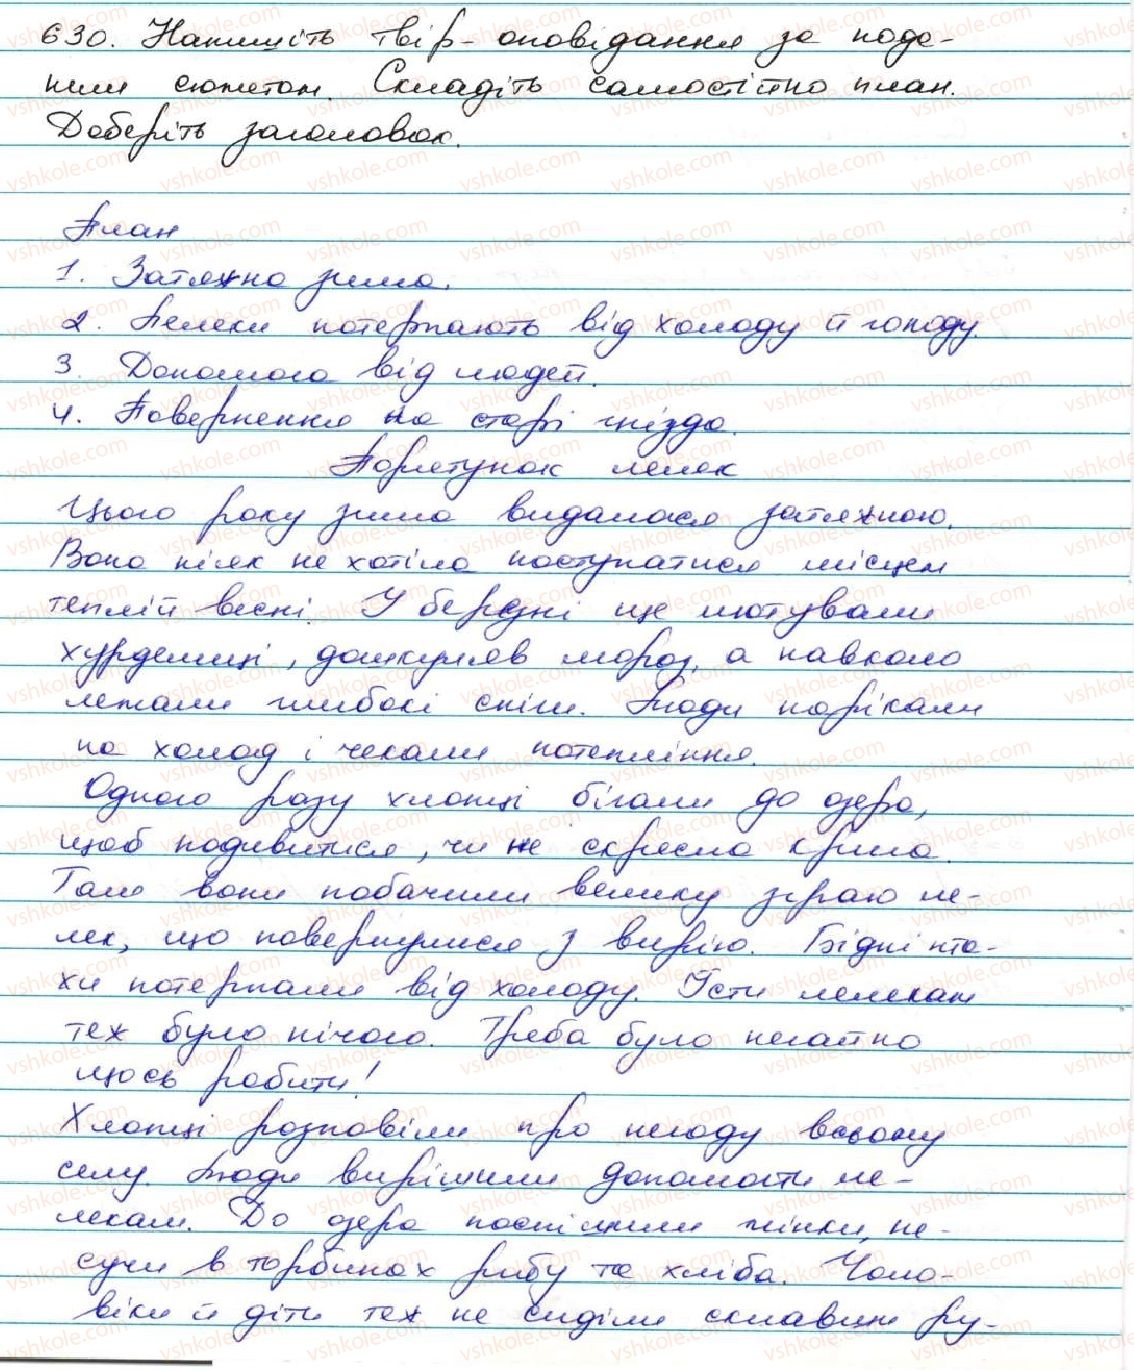 630. Напишіть твір-оповідання за пода-
ним сюжетом. Складіть самостійно план.
Доберіть заголовок.
План
1. Затяжна зима.
2. Лелеки потерпають від холоду й голоду.
3. Допомога від людей.
4. Повернення на старі гнізда.
Порятунок лелек
Цього року зима видалася затяжною.
Вона ніяк не хотіла поступатися місцем
теплій весні. У березні ще лютували
хурделиці, дошкуляв мороз, а навколо
лежали глибокі сніги. Люди нарікали
на холод і чекали потепління.
Одного разу хлопці бігали до озера,
щоб подивитися, чи не скресла крига.
Там вони побачили велику зграю ле-
лек, що повернулися з вирію. Бідні пта-
хи потерпали від холоду. Їсти лелекам
теж було нічого. Треба було негайно
щось робити!
Хлопці розповіли про негоду всьому
селу. Люди вирішили допомогти ле-
лекам. До озера поспішили жінки, не-
сучи в торбинах рибу та хліба. Чоло-
віки й діти теж не сиділи склавши ру-
vshkole.com